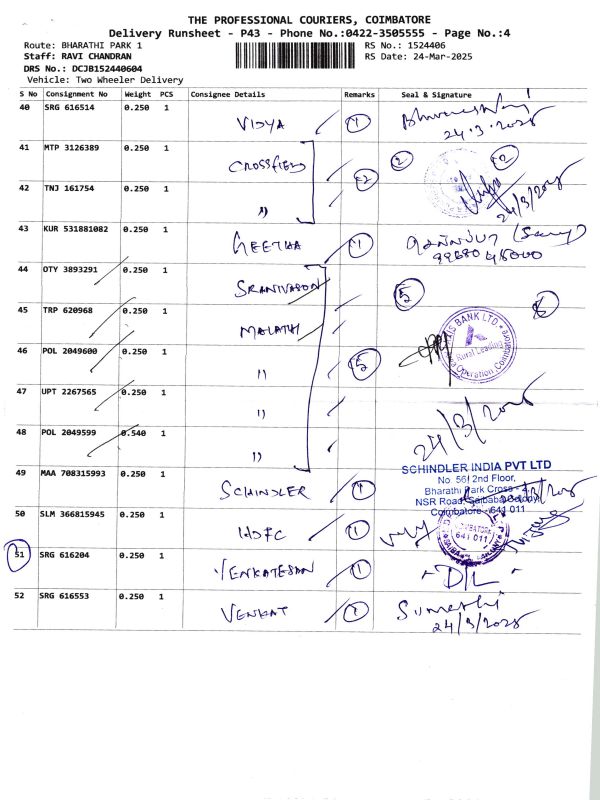 THE PROFESSIONAL COURIERS, COIMBATORE
Delivery Runsheet - P43 - Phone No.:0422-3505555 - Page No.:4
Route: BHARATHI PARK 1
RS No.: 1524406
Staff: RAVI CHANDRAN
RS Date: 24-Mar-2025
DRS No.: DCJB152440604
Vehicle: Two Wheeler Delivery
S No Consignment No Weight PCS Consignee Details Remarks Seal & Signature
40 SRG 616514 0.250 1 VIDYA 1
24.3.2025
41 MTP 3126389 0.250 1 CROSSFIELD 2 2
42 TNJ 161754 0.250 1 " 2
24/3/2025
43 KUR 531881082 0.250 1 GEETHA 1
44 OTY 3893291 0.250 1 SRANIVASON 5
45 TRP 620968 0.250 1 MALATHI
AXIS BANK LTD
Rural Lending
46 POL 2049600 0.250 1 " 5
47 UPT 2267565 0.250 1 "
24/3/2025
48 POL 2049599 0.540 1 "
49 MAA 708315993 0.250 1 SCHINDLER 1
SCHINDLER INDIA PVT LTD
No. 56, 2nd Floor,
Bharathi Park Cross
NSR Road, Saibaba Colony
Coimbatore - 641 011
50 SLM 366815945 0.250 1 HDFC 1
COIMBATORE
641 011
51 SRG 616204 0.250 1 VENKATESAN 1 "D/L"
52 SRG 616553 0.250 1 VENKAT 1
24/3/2025